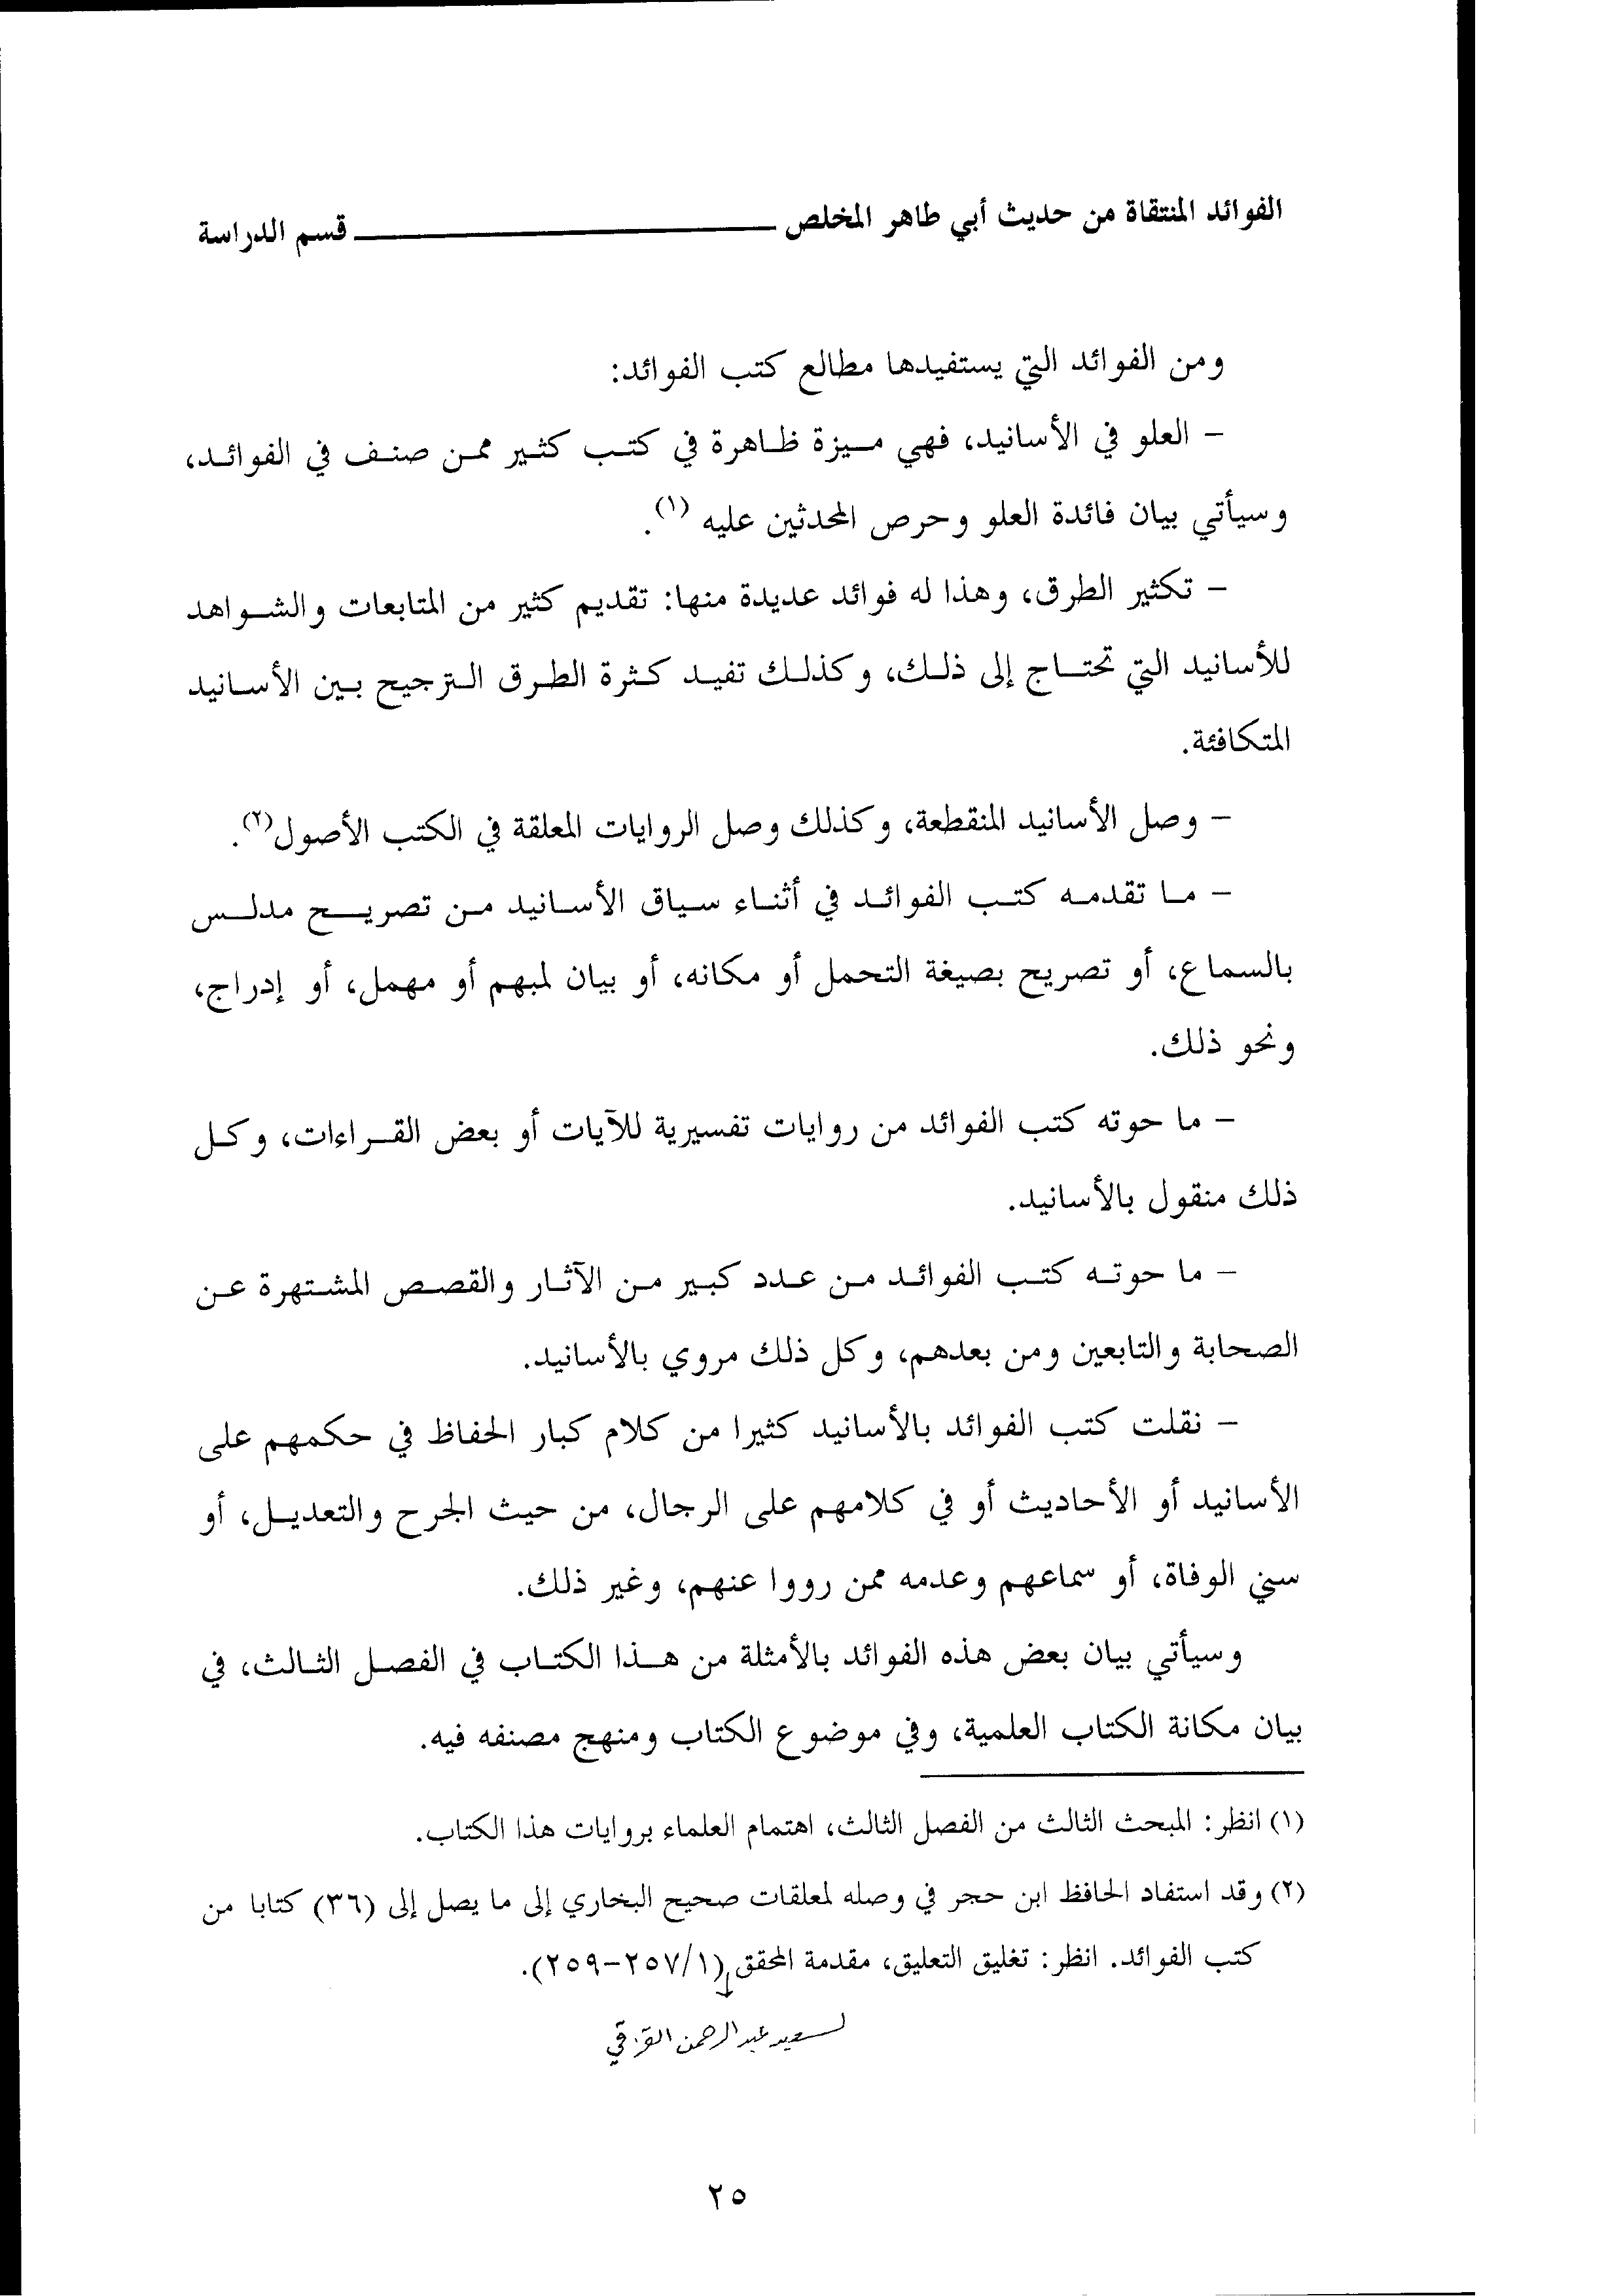 الفوائد المنتقاة من حديث أبي طاهر المخلص ــــــــــــــــ قسم الدراسة
ومن الفوائد التي يستفيدها مطالع كتب الفوائد:
- العلو في الأسانيد، فهي ميزة ظاهرة في كتب كثير ممن صنف في الفوائد،
وسيأتي بيان فائدة العلو وحرص المحدثين عليه (١).
- تكثير الطرق، وهذا له فوائد عديدة منها: تقديم كثير من المتابعات والشواهد
للأسانيد التي تحتاج إلى ذلك، وكذلك تفيد كثرة الطرق الترجيح بين الأسانيد
المتكافئة.
- وصل الأسانيد المنقطعة، وكذلك وصل الروايات المعلقة في الكتب الأصول(٢).
- ما تقدمه كتب الفوائد في أثناء سياق الأسانيد من تصريح مدلس
بالسماع، أو تصريح بصيغة التحمل أو مكانه، أو بيان لمبهم أو مهمل، أو إدراج،
ونحو ذلك.
- ما حوته كتب الفوائد من روايات تفسيرية للآيات أو بعض القراءات، وكل
ذلك منقول بالأسانيد.
- ما حوته كتب الفوائد من عدد كبير من الآثار والقصص المشتهرة عن
الصحابة والتابعين ومن بعدهم، وكل ذلك مروي بالأسانيد.
- نقلت كتب الفوائد بالأسانيد كثيرا من كلام كبار الحفاظ في حكمهم على
الأسانيد أو الأحاديث أو في كلامهم على الرجال، من حيث الجرح والتعديل، أو
سني الوفاة، أو سماعهم وعدمه ممن رووا عنهم، وغير ذلك.
وسيأتي بيان بعض هذه الفوائد بالأمثلة من هذا الكتاب في الفصل الثالث، في
بيان مكانة الكتاب العلمية، وفي موضوع الكتاب ومنهج مصنفه فيه.
(١) انظر: المبحث الثالث من الفصل الثالث، اهتمام العلماء بروايات هذا الكتاب.
(٢) وقد استفاد الحافظ ابن حجر في وصله لمعلقات صحيح البخاري إلى ما يصل إلى (٣٦) كتابا من
كتب الفوائد. انظر: تغليق التعليق، مقدمة المحقق (٢٥٧/١-٢٥٩).
لسعيد عبدالرحمن القزقي
٢٥